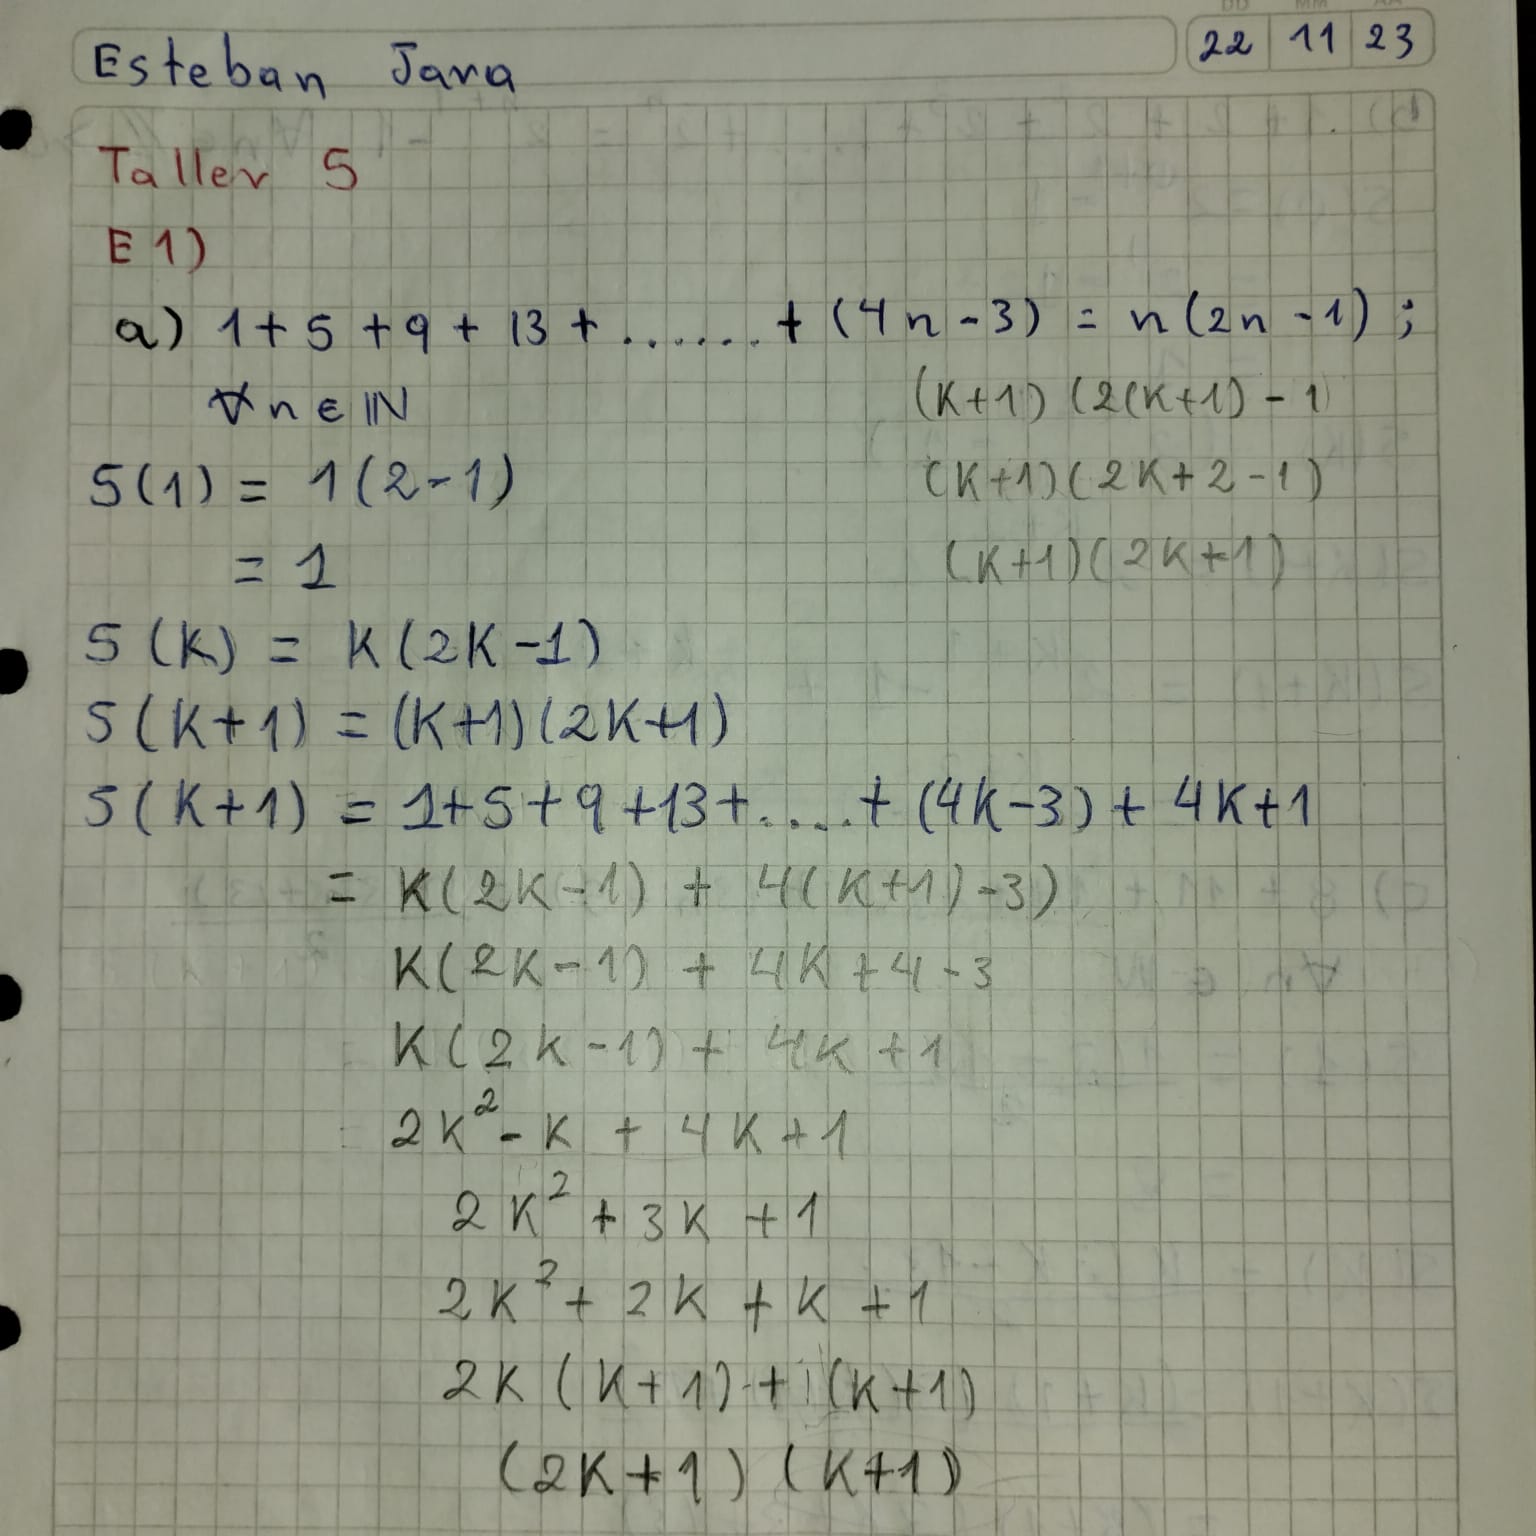 DD MM AA
Esteban Jara 22 11 23
Taller 5
E1)
a) 1+5+9+13+.......+(4n-3) = n(2n-1);
∀n∈ℕ (K+1)(2(K+1)-1
S(1) = 1(2-1) (K+1)(2K+2-1)
= 1 (K+1)(2K+1)
S(K) = K(2K-1)
S(K+1) = (K+1)(2K+1)
S(K+1) = 1+5+9+13+.....+(4K-3)+4K+1
= K(2K-1) + 4(K+1)-3)
K(2K-1) + 4K+4-3
K(2K-1) + 4K+1
= 2K²-K + 4K+1
2K² + 3K + 1
2K² + 2K + K + 1
2K(K+1) + (K+1)
(2K+1)(K+1)